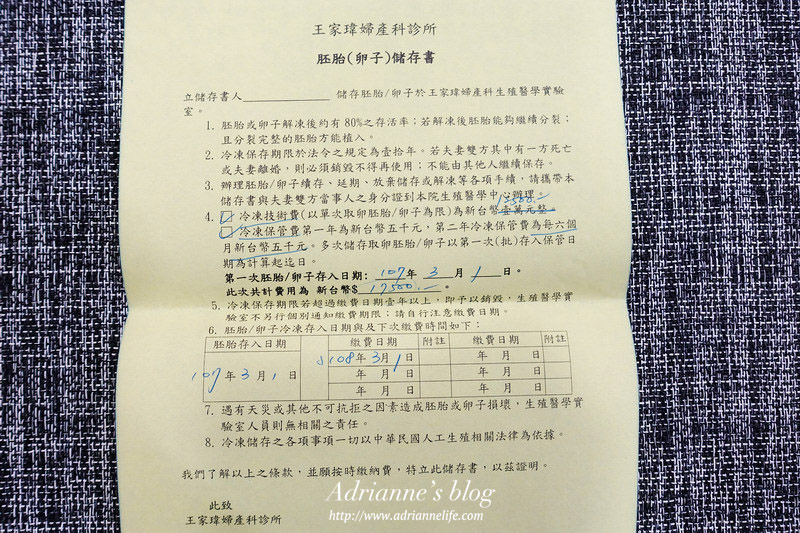 王家瑋婦產科診所
胚胎(卵子)儲存書
立儲存書人____________ 儲存胚胎/卵子於王家瑋婦產科生殖醫學實驗
室。
1. 胚胎或卵子解凍後約有 80%之存活率；若解凍後胚胎能夠繼續分裂；
且分裂完整的胚胎方能植入。
2. 冷凍保存期限於法令之規定為壹拾年。若夫妻雙方其中有一方死亡
或夫妻離婚，則必須銷毀不得再使用；不能由其他人繼續保存。
3. 辦理胚胎/卵子續存、延期、放棄儲存或解凍等各項手續，請攜帶本
儲存書與夫妻雙方當事人之身分證到本院生殖醫學中心辦理。
4. ☑ 冷凍技術費(以單次取卵胚胎/卵子為限)為新台幣壹萬元整。
☑ 冷凍保管費第一年為新台幣五千元，第二年冷凍保管費為每六個
月新台幣五千元。多次儲存取卵胚胎/卵子以第一次(批)存入保管日
期為計算起迄日。
第一次胚胎/卵子存入日期: 107年 3 月 1 日。
此次共計費用為 新台幣$ 17500.-
5. 冷凍保存期限若超過繳費日期壹年以上，即予以銷毀，生殖醫學實
驗室不另行個別通知繳費期限；請自行注意繳費日期。
6. 胚胎/卵子冷凍存入日期與及下次繳費時間如下：
胚胎存入日期 繳費日期 附註 繳費日期 附註
107 年 3 月 1 日
108年 3月 1日 年 月 日
年 月 日 年 月 日
年 月 日 年 月 日
7. 遇有天災或其他不可抗拒之因素造成胚胎或卵子損壞，生殖醫學實
驗室人員則無相關之責任。
8. 冷凍儲存之各項事項一切以中華民國人工生殖相關法律為依據。
我們了解以上之條款，並願按時繳納費，特立此儲存書，以茲證明。
此致
王家瑋婦產科診所
Adrianne's blog
http://www.adriannelife.com